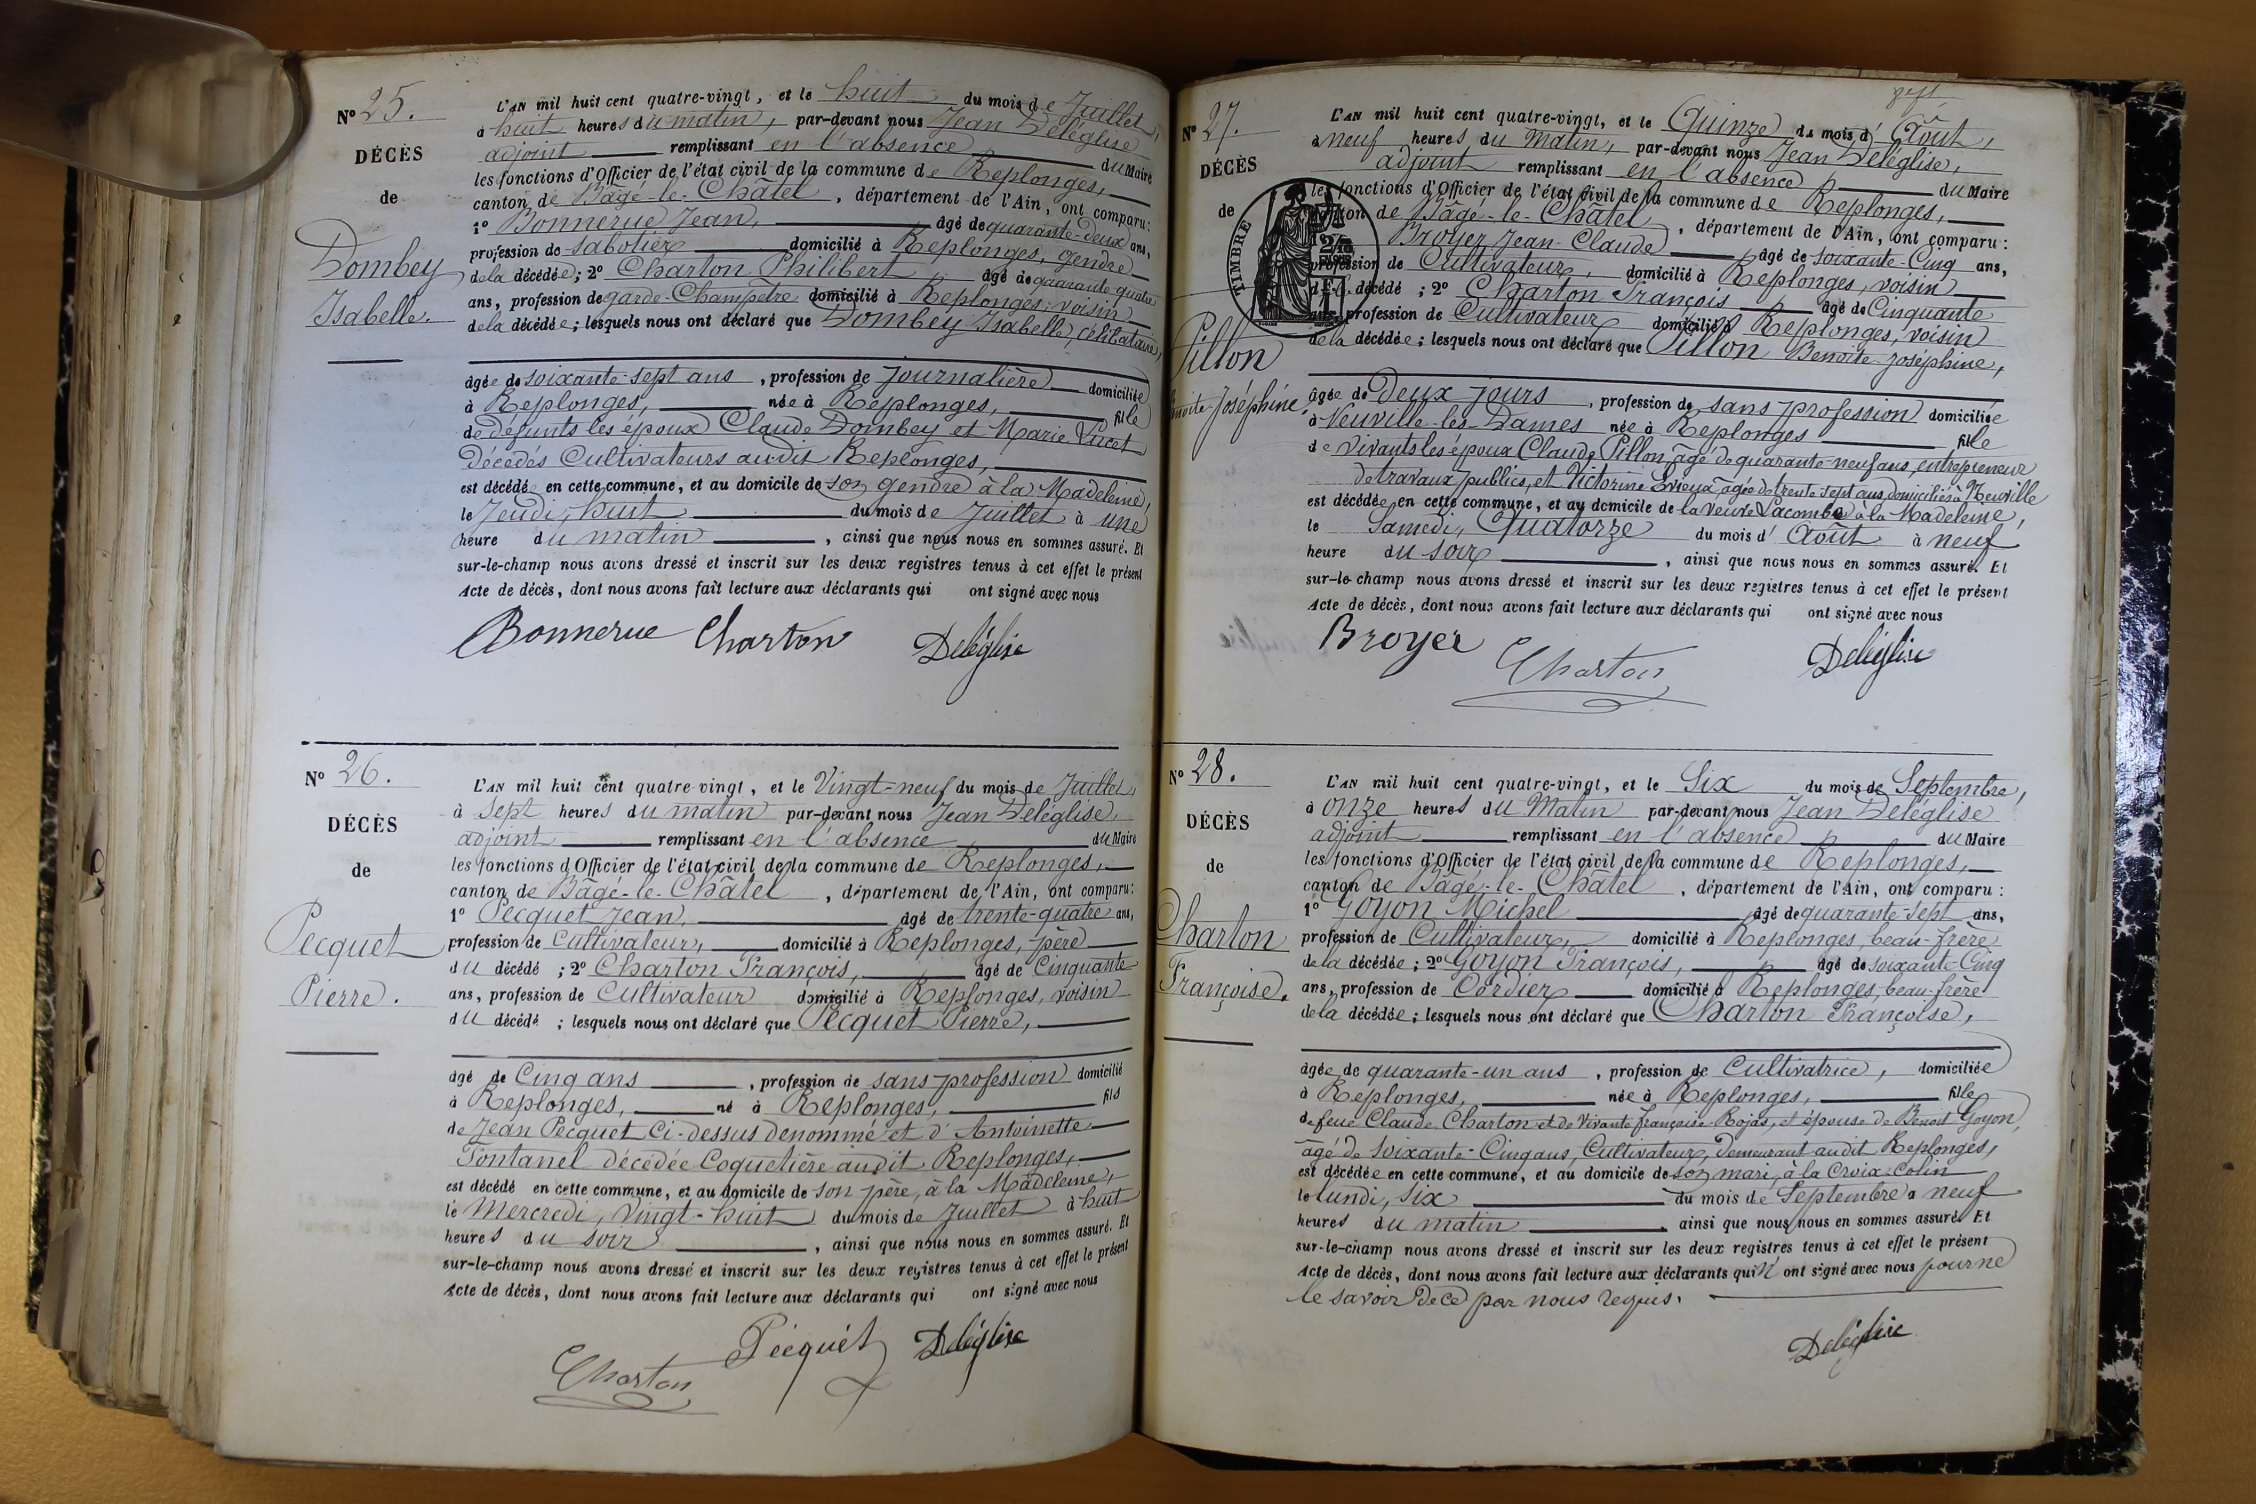 Nº 25.
DÉCÈS
de
Dombey
Isabelle.
L'AN mil huit cent quatre-vingt, et le huit du mois de Juillet,
à huit heures du matin, par-devant nous Jean Deléglise
adjoint remplissant en l'absence du Maire
les fonctions d'Officier de l'état civil de la commune de Replonges,
canton de Bâgé-le-Châtel, département de l'Ain, ont comparu:
1º Bonnerue Jean, âgé de quarante-deux ans,
profession de sabotier domicilié à Replonges, gendre
de la décédée; 2º Charton Philibert âgé de quarante-quatre
ans, profession de garde-Champêtre domicilié à Replonges, voisin
de la décédée; lesquels nous ont déclaré que Dombey Isabelle, célibataire,
âgée de soixante-sept ans, profession de journalière domiciliée
à Replonges, née à Replonges, fille
de défunts les époux Claude Dombey et Marie Pucet
décédés Cultivateurs audit Replonges,
est décédée en cette commune, et au domicile de son gendre à la Madeleine,
le Jeudi, huit du mois de Juillet à une
heure du matin, ainsi que nous nous en sommes assuré. Et
sur-le-champ nous avons dressé et inscrit sur les deux registres tenus à cet effet le présent
Acte de décès, dont nous avons fait lecture aux déclarants qui ont signé avec nous
Bonnerue Charton Deléglise
Nº 26.
DÉCÈS
de
Pecquet
Pierre.
L'AN mil huit cent quatre-vingt, et le Vingt-neuf du mois de Juillet,
à sept heures du matin par-devant nous Jean Deléglise,
adjoint remplissant en l'absence du Maire
les fonctions d'Officier de l'état civil de la commune de Replonges,
canton de Bâgé-le-Châtel, département de l'Ain, ont comparu:
1º Pecquet Jean, âgé de trente-quatre ans,
profession de Cultivateur, domicilié à Replonges, père
du décédé; 2º Charton François, âgé de Cinquante
ans, profession de Cultivateur domicilié à Replonges, voisin
du décédé; lesquels nous ont déclaré que Pecquet Pierre,
âgé de Cinq ans, profession de sans profession domicilié
à Replonges, né à Replonges, fils
de Jean Pecquet Ci-dessus denommé et d'Antoinette
Fontanel décédée Coquetière audit Replonges,
est décédé en cette commune, et au domicile de son père, à la Madeleine,
le Mercredi, vingt-huit du mois de Juillet à huit
heures du soir, ainsi que nous nous en sommes assuré. Et
sur-le-champ nous avons dressé et inscrit sur les deux registres tenus à cet effet le présent
Acte de décès, dont nous avons fait lecture aux déclarants qui ont signé avec nous
Charton Pécquet Deléglise
Nº 27.
DÉCÈS
de
TIMBRE
Pillon
Benoite Joséphine.
L'AN mil huit cent quatre-vingt, et le Quinze du mois d'Août,
à neuf heures du Matin, par-devant nous Jean Deléglise,
adjoint remplissant en l'absence du Maire
les fonctions d'Officier de l'état civil de la commune de Replonges,
canton de Bâgé-le-Châtel, département de l'Ain, ont comparu:
Broyer Jean-Claude âgé de soixante-Cinq ans,
profession de Cultivateur, domicilié à Replonges, voisin
décédé; 2º Charton François âgé de Cinquante
ans, profession de Cultivateur domicilié à Replonges, voisin
de la décédée; lesquels nous ont déclaré que Pillon Benoite Joséphine,
âgée de Deux jours, profession de sans profession domiciliée
à Neuville-les-Dames née à Replonges fille
de vivants les époux Claude Pillon, âgé de quarante-neuf ans, entrepreneur
de travaux publics, et Victorine âgée de trente sept ans, domiciliés à Neuville
est décédée en cette commune, et au domicile de la Veuve Lacombe à la Madeleine,
le Samedi, Quatorze du mois d'Août à neuf
heure du soir, ainsi que nous nous en sommes assuré. Et
sur-le-champ nous avons dressé et inscrit sur les deux registres tenus à cet effet le présent
Acte de décès, dont nous avons fait lecture aux déclarants qui ont signé avec nous
Broyer Charton Deléglise
Nº 28.
DÉCÈS
de
Charton
Françoise.
L'AN mil huit cent quatre-vingt, et le Six du mois de Septembre,
à onze heures du Matin par-devant nous Jean Deléglise
adjoint remplissant en l'absence du Maire
les fonctions d'Officier de l'état civil de la commune de Replonges,
canton de Bâgé-le-Châtel, département de l'Ain, ont comparu:
1º Goyon Michel âgé de quarante-sept ans,
profession de Cultivateur, domicilié à Replonges, beau-frère
de la décédée; 2º Goyon François, âgé de soixante-Cinq
ans, profession de Cordier domicilié à Replonges, beau-frère
de la décédée; lesquels nous ont déclaré que Charton Françoise,
âgée de quarante-un ans, profession de Cultivatrice, domiciliée
à Replonges, née à Replonges, fille
de feue Claude Charton et de Vivante françoise Rojas, et épouse de Benoit Goyon,
âgé de soixante-Cinq ans, Cultivateur, demeurant audit Replonges,
est décédée en cette commune, et au domicile de son mari, à la Croix-Colin
le lundi, six du mois de Septembre à neuf
heures du matin, ainsi que nous nous en sommes assuré. Et
sur-le-champ nous avons dressé et inscrit sur les deux registres tenus à cet effet le présent
Acte de décès, dont nous avons fait lecture aux déclarants qui n'ont signé avec nous pour ne
le savoir De ce par nous requis.
Deléglise